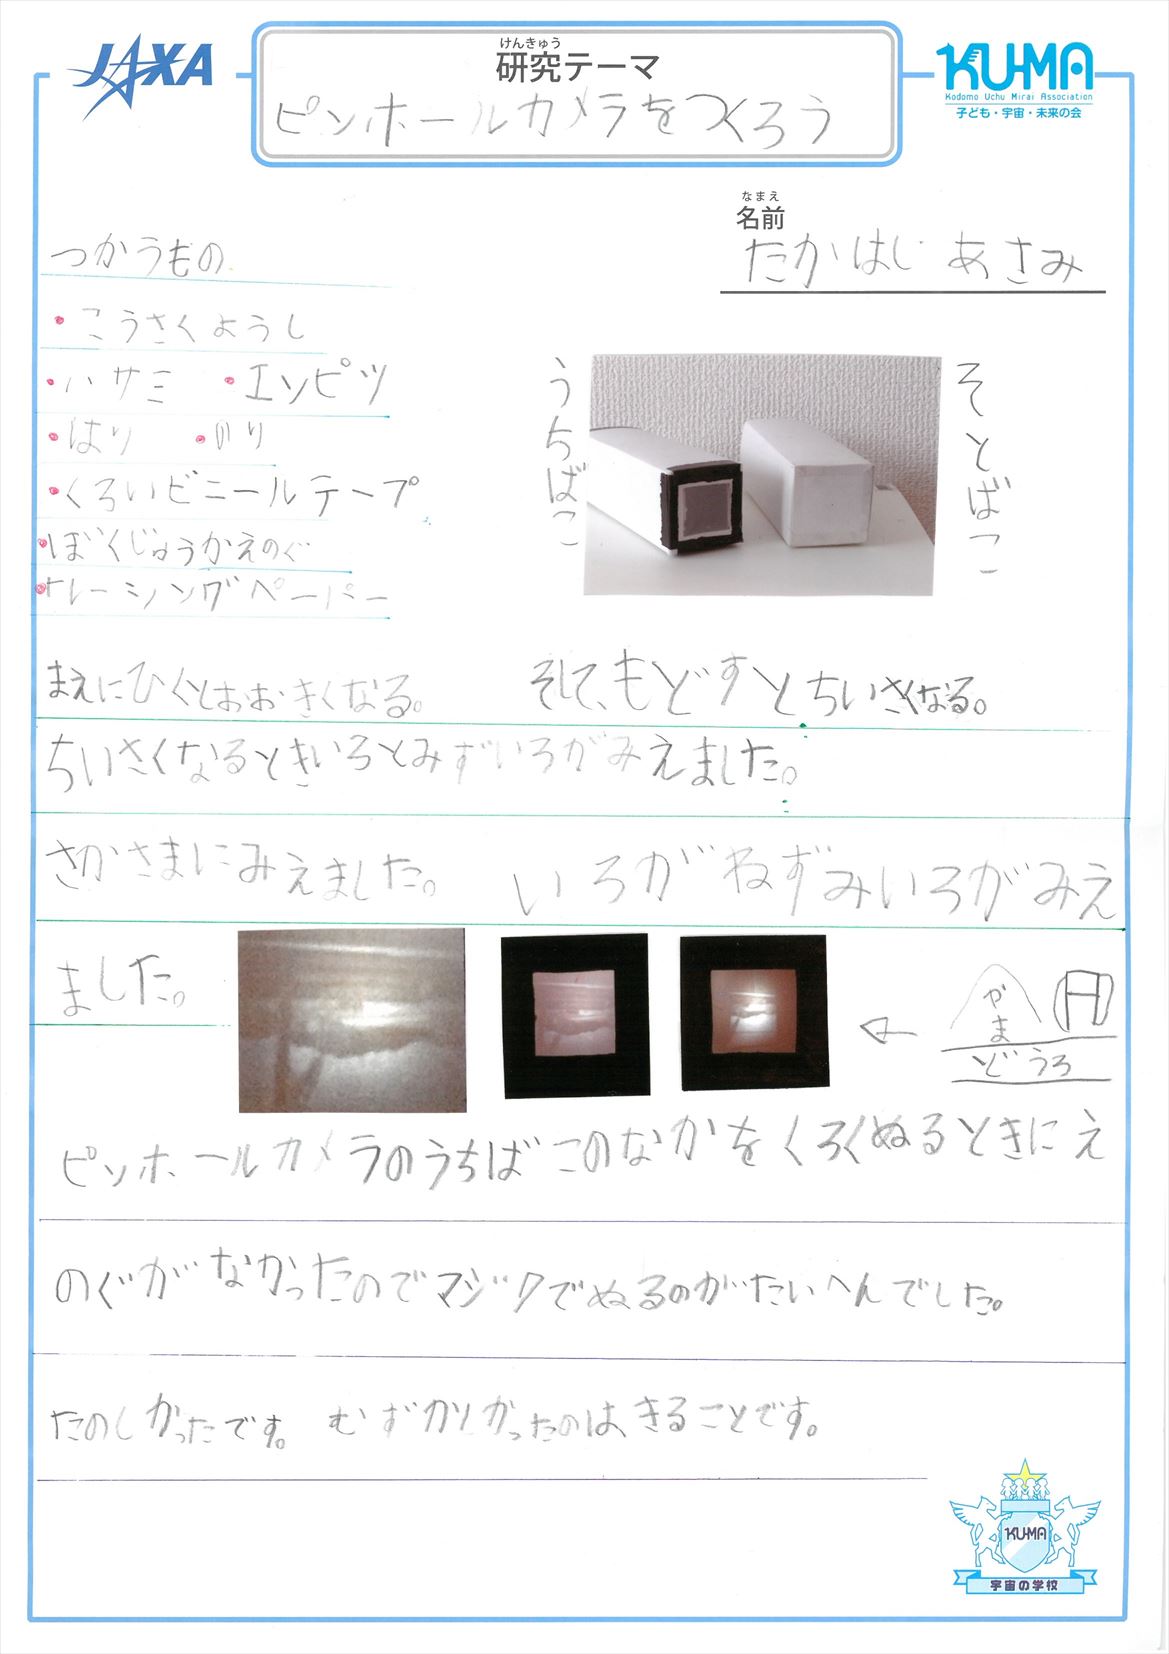 JAXA
けんきゅう
研究テーマ
KU-MA
Kodomo Uchu Mirai Association
子ども・宇宙・未来の会
ピンホールカメラをつくろう
なまえ
名前
たかはし あさみ
つかうもの
・こうさくようし
・ハサミ ・エンピツ
・はり ・のり
・くろいビニールテープ
・ぼくじゅうかえのぐ
・トレーシングペーパー
うちばこ
そとばこ
まえにひくとおおきくなる。 そして、もどすとちいさくなる。
ちいさくなるときいろとみずいろがみえました。
さかさまにみえました。 いろがねずみいろがみえ
ました。
やま
どうろ
ピンホールカメラのうちばこのなかをくろくぬるときにえ
のぐがなかったのでマジックでぬるのがたいへんでした。
たのしかったです。 むずかしかったのは、きることです。
KU-MA
宇宙の学校